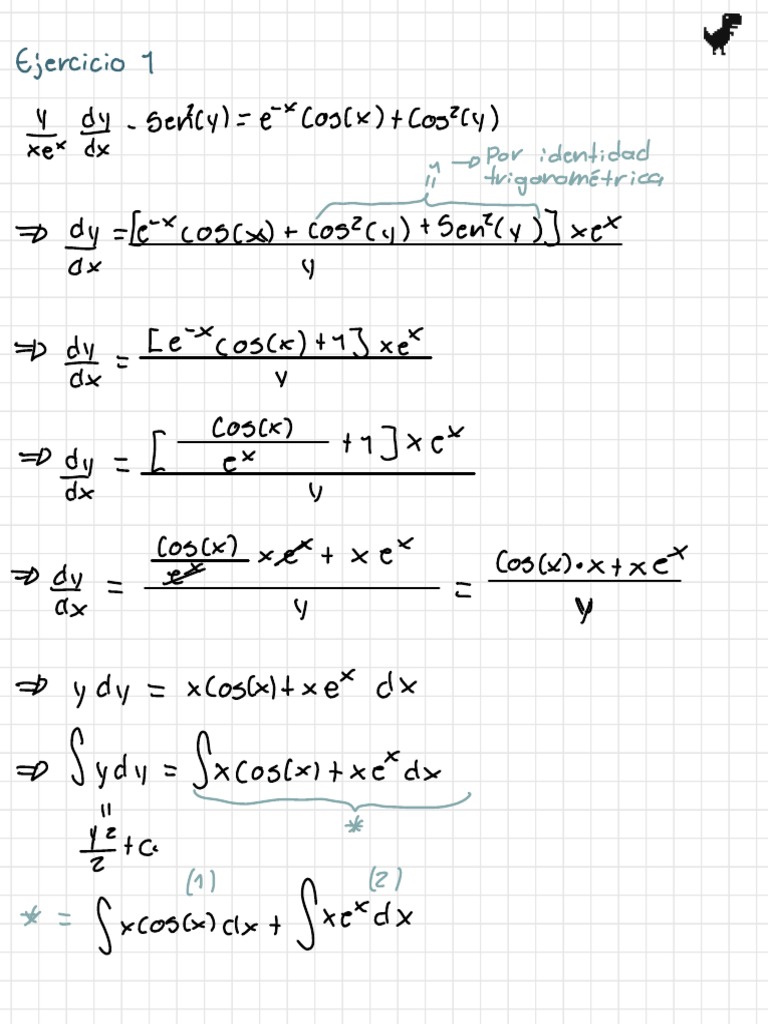 Ejercicio 1
y/(xe^x) dy/dx - Sen²(y) = e^-x Cos(x) + Cos²(y)
1 → Por identidad
trigonométrica
⇒ dy/dx = [e^-x cos(x) + cos²(y) + Sen²(y)] xe^x / y
⇒ dy/dx = [e^-x cos(x) + 1] xe^x / y
⇒ dy/dx = [Cos(x)/e^x + 1] x e^x / y
⇒ dy/dx = (Cos(x)/e^x x e^x + x e^x) / y = (Cos(x)·x + xe^x) / y
⇒ y dy = x Cos(x) + x e^x dx
⇒ ∫ y dy = ∫ x Cos(x) + x e^x dx
= *
y²/2 + C
(1) (2)
* = ∫ x Cos(x) dx + ∫ x e^x dx